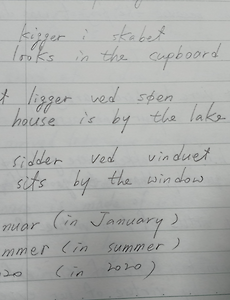 kigger i skabet
looks in the cupboard
t ligger ved søen
house is by the lake
sidder ved vinduet
sits by the window
nuar (in January)
mmer (in summer)
020 (in 2020)